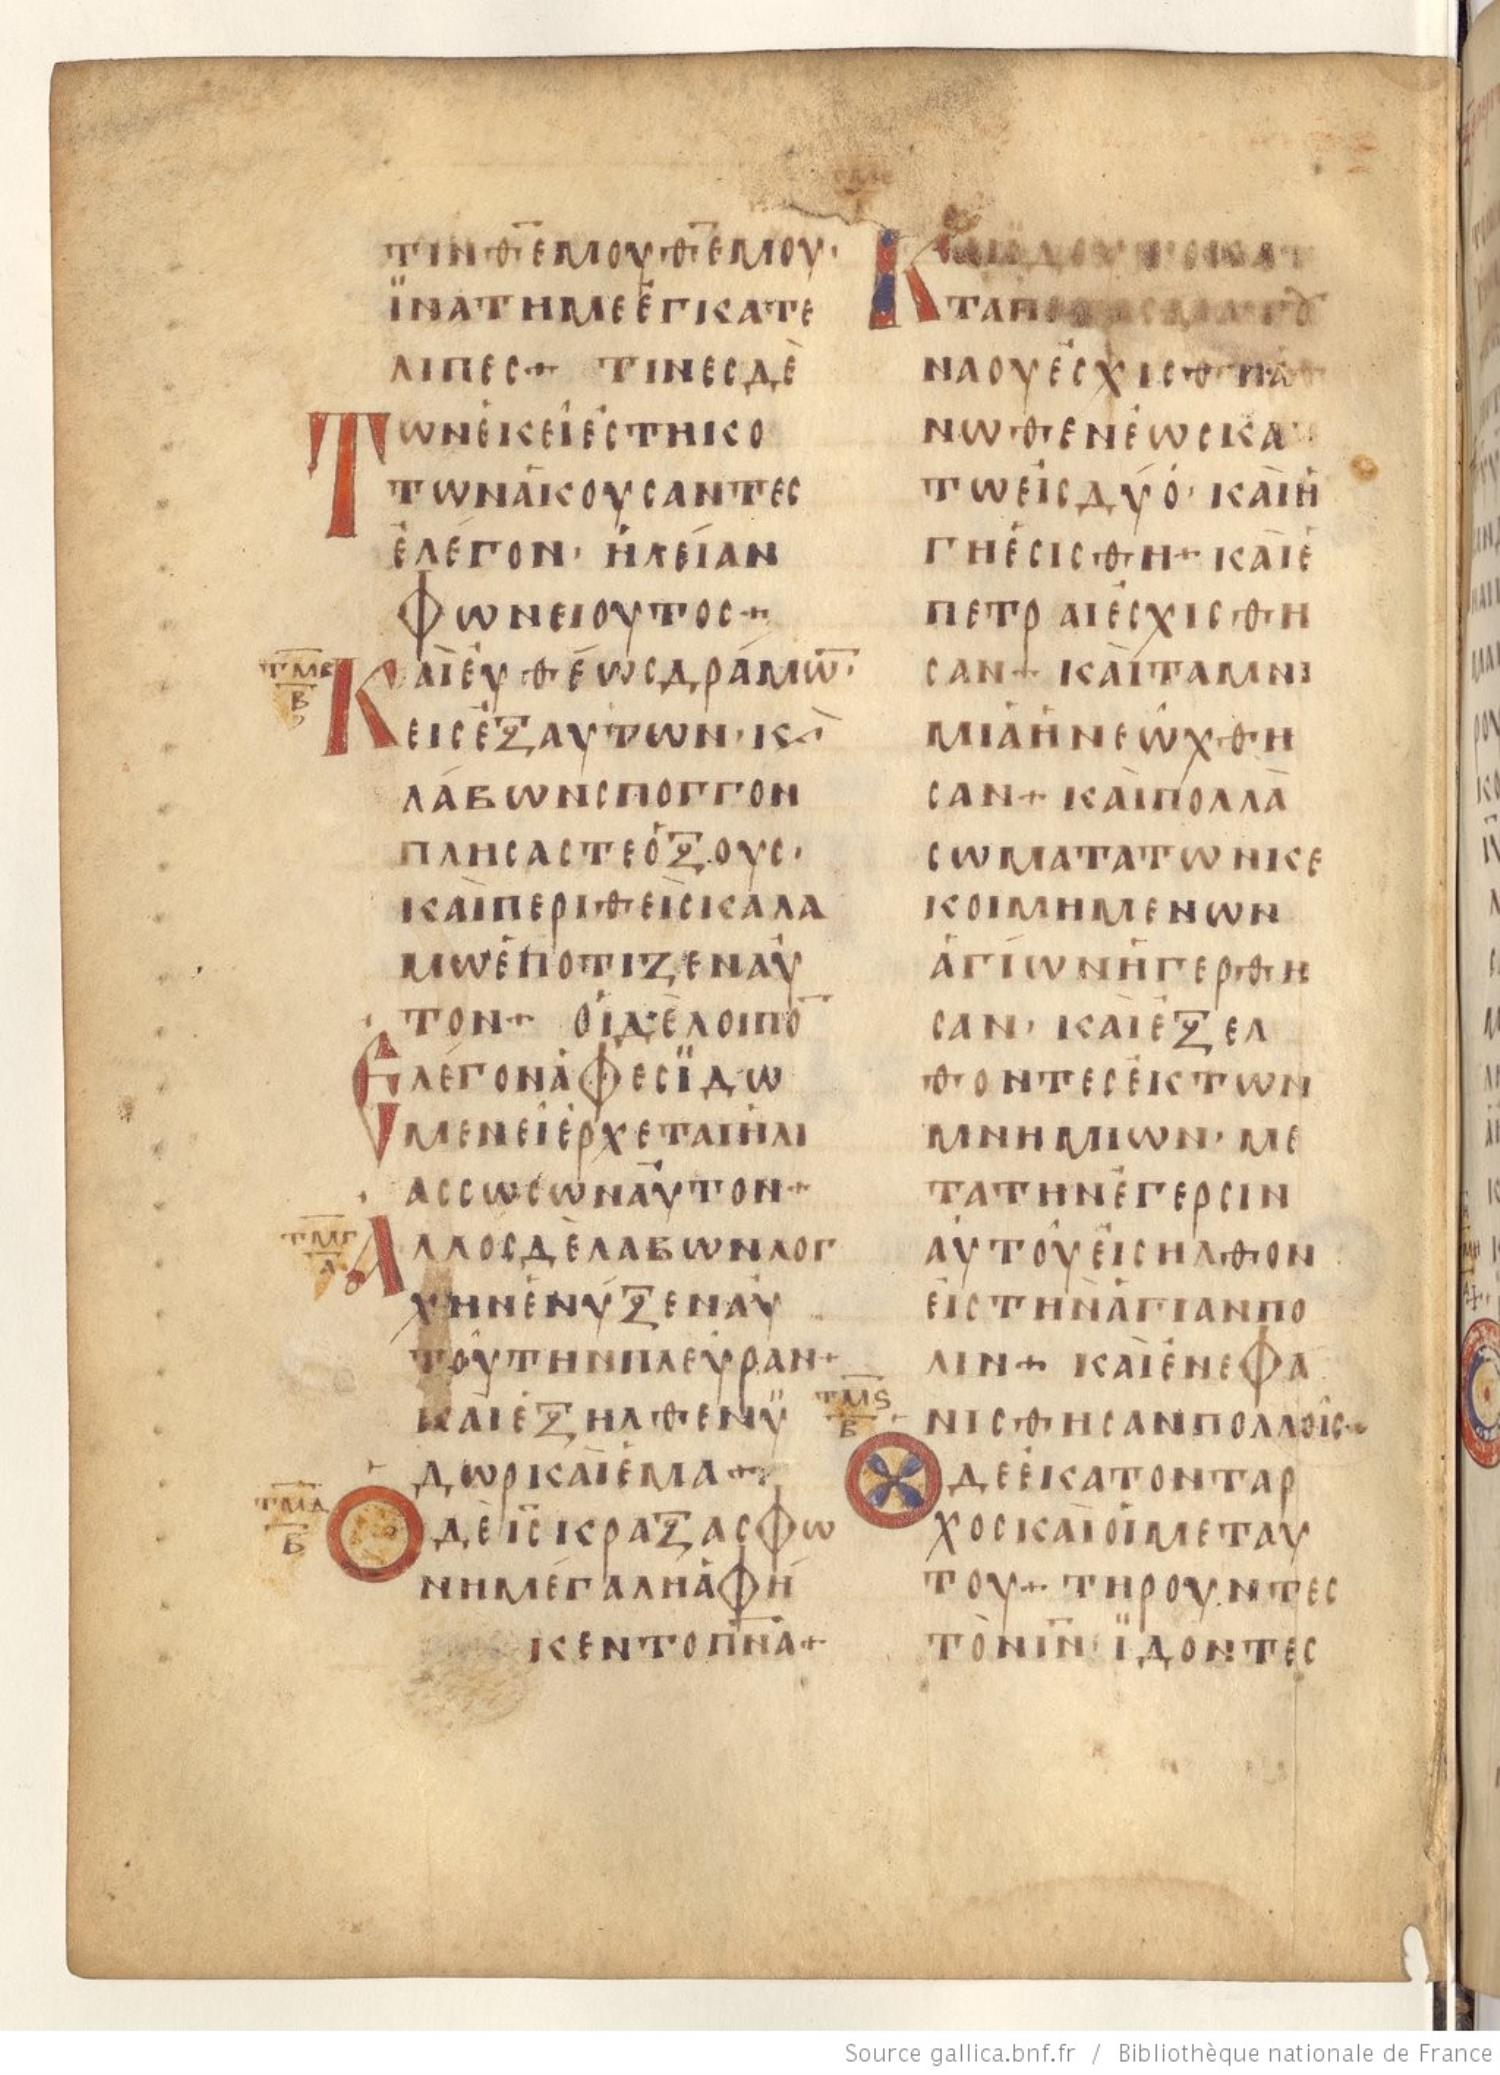 ΤΙΝ ΘΕ ΜΟΥ ΘΕ ΜΟΥ·
ΪΝΑΤΗΜΕΕΓΚΑΤΕ
ΛΙΠΕΣ+ ΤΙΝΕΣΔΕ
ΤΩΝΕΚΕΙΕΣΤΗΚΟ
ΤΩΝΑΚΟΥΣΑΝΤΕΣ
ΕΛΕΓΟΝ· ΗΛΕΙΑΝ
ΦΩΝΕΙΟΥΤΟΣ+
ΤΜΒ
Β
ΚΑΙΕΥΘΕΩΣΔΡΑΜΩ̅·
ΕΙΣΕΞΑΥΤΩΝ·ΚΑΙ
ΛΑΒΩΝΣΠΟΓΓΟΝ
ΠΛΗΣΑΣΤΕΟΞΟΥΣ·
ΚΑΙΠΕΡΙΘΕΙΣΚΑΛΑ
ΜΩΕΠΟΤΙΖΕΝΑΥ
ΤΟΝ+ ΟΙΔΕΛΟΙΠΟ̅
ΕΛΕΓΟΝΑΦΕΣΪΔΩ
ΜΕΝΕΙΕΡΧΕΤΑΙΗΛΙ
ΑΣΣΩΣΩΝΑΥΤΟΝ+
ΤΜΓ
Α
ΑΛΛΟΣΔΕΛΑΒΩΝΛΟΓ
ΧΗΝΕΝΥΞΕΝΑΥ
ΤΟΥΤΗΝΠΛΕΥΡΑΝ+
ΚΑΙΕΞΗΛΘΕΝΫ
ΔΩΡΚΑΙΕΜΑ+
ΤΜΔ
Β
ΟΔΕΙ̅Σ̅ΚΡΑΞΑΣΦΩ
ΝΗΜΕΓΑΛΗΑΦΗ
ΚΕΝΤΟΠ̅Ν̅Α̅+
ΤΜΕ
ΚΑΙΪΔΟΥ
ΤΑΠΕ
ΝΑΟΥΕΣΧΙΣΘΗ
ΝΩΘΕΝΕΩΣΚΑ
ΤΩΕΙΣΔΥΟ· ΚΑΙΗ
ΓΗΕΣΙΣΘΗ+ ΚΑΙΕ
ΠΕΤΡΑΙΕΣΧΙΣΘΗ
ΣΑΝ+ ΚΑΙΤΑΜΝΙ
ΜΙΑΗΝΕΩΧΘΗ
ΣΑΝ+ ΚΑΙΠΟΛΛΑ
ΣΩΜΑΤΑΤΩΝΚΕ
ΚΟΙΜΗΜΕΝΩΝ
ΑΓΙΩΝΗΓΕΡΘΗ
ΣΑΝ· ΚΑΙΕΞΕΛ
ΘΟΝΤΕΣΕΚΤΩΝ
ΜΝΗΜΙΩΝ· ΜΕ
ΤΑΤΗΝΕΓΕΡΣΙΝ
ΑΥΤΟΥΕΙΣΗΛΘΟΝ
ΕΙΣΤΗΝΑΓΙΑΝΠΟ
ΛΙΝ+ ΚΑΙΕΝΕΦΑ
ΝΙΣΘΗΣΑΝΠΟΛΛΟΙΣ+
ΤΜϚ
Β
ΟΔΕΕΚΑΤΟΝΤΑΡ
ΧΟΣΚΑΙΟΙΜΕΤΑΥ
ΤΟΥ+ ΤΗΡΟΥΝΤΕΣ
ΤΟΝΙ̅Ν̅ ΪΔΟΝΤΕΣ
Source gallica.bnf.fr / Bibliothèque nationale de France